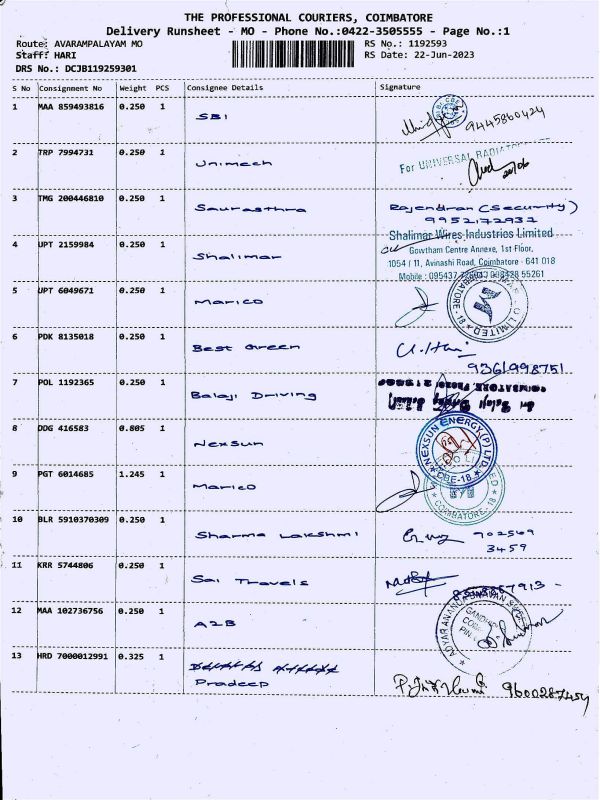 THE PROFESSIONAL COURIERS, COIMBATORE
Delivery Runsheet - MO - Phone No.:0422-3505555 - Page No.:1
Route: AVARAMPALAYAM MO RS No.: 1192593
Staff: HARI RS Date: 22-Jun-2023
DRS No.: DCJB119259301
S No Consignment No Weight PCS Consignee Details Signature
1 MAA 859493816 0.250 1 SBI 9445860424
2 TRP 7994731 0.250 1 Unimech For UNIVERSAL RADIATOR
3 TMG 200446810 0.250 1 Saurasthra Rajendran (Security)
9952172932
4 UPT 2159984 0.250 1 Shalimar Shalimar Wires Industries Limited
Gowtham Centre Annexe, 1st Floor,
1054 / 11, Avinashi Road, Coimbatore - 641 018
Mobile : 55261
5 UPT 6049671 0.250 1 Marico LIMITED
6 PDK 8135018 0.250 1 Best Green
9361998751
7 POL 1192365 0.250 1 Balaji Driving
8 DDG 416583 0.805 1 Nexsun NEXSUN ENERGY (P) LTD. CBE-18
9 PGT 6014685 1.245 1 Marico COIMBATORE-18
10 BLR 5910370309 0.250 1 Sharma Lakshmi 902569
3459
11 KRR 5744806 0.250 1 Sai Travels
12 MAA 102736756 0.250 1 A2B ADYAR ANANDA BHAVAN
13 HRD 7000012991 0.325 1
Pradeep 9600287454